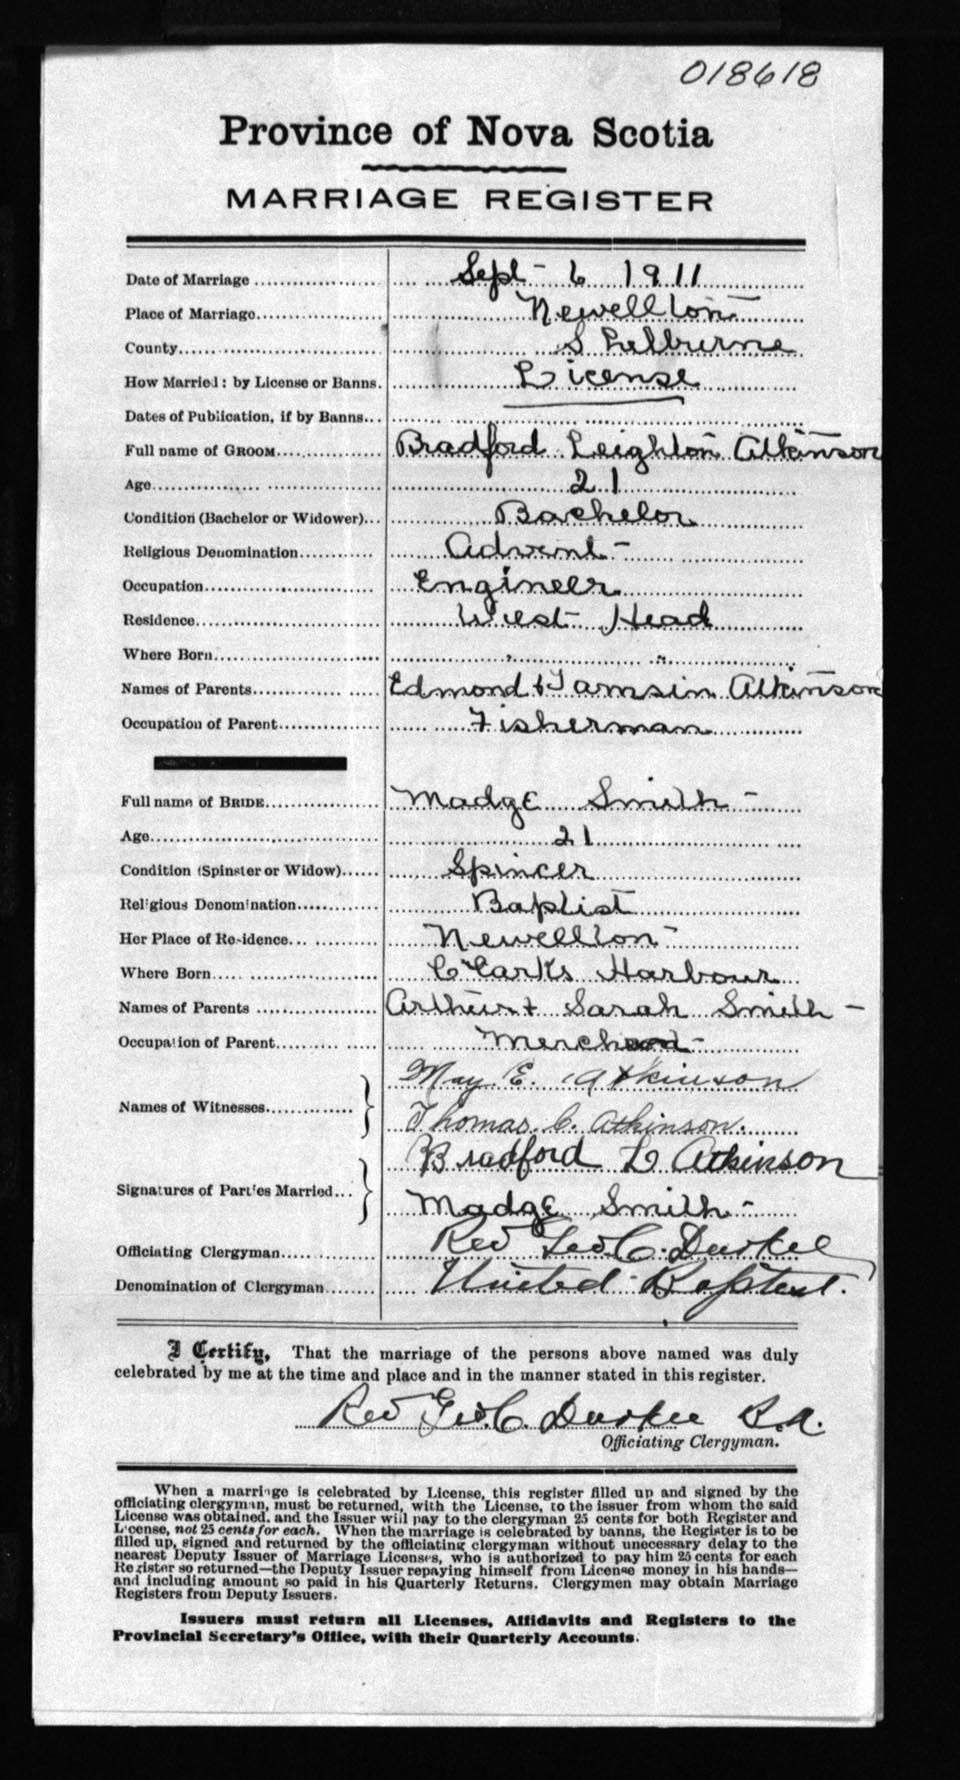 018618
Province of Nova Scotia
MARRIAGE REGISTER
Date of Marriage Sept - 6 1911
Place of Marriage Newellton
County Shelburne
How Married: by License or Banns. License
Dates of Publication, if by Banns
Full name of GROOM Bradford Leighton Atkinson
Age 21
Condition (Bachelor or Widower) Bachelor
Religious Denomination Advent -
Occupation Engineer
Residence West Head
Where Born " "
Names of Parents Edmond & Tamsin Atkinson
Occupation of Parent Fisherman
Full name of BRIDE Madge Smith -
Age 21
Condition (Spinster or Widow) Spincer
Religious Denomination Baptist
Her Place of Residence Newellton -
Where Born Clarks Harbour
Names of Parents Arthur & Sarah Smith -
Occupation of Parent Merchant -
Names of Witnesses May E. Atkinson
Thomas C. Atkinson.
Signatures of Parties Married Bradford L Atkinson
Madge Smith -
Officiating Clergyman Rev Geo. C. Durkee
Denomination of Clergyman United Baptist.
I Certify, That the marriage of the persons above named was duly
celebrated by me at the time and place and in the manner stated in this register.
Rev Geo. C. Durkee B.A.
Officiating Clergyman.
When a marriage is celebrated by License, this register filled up and signed by the
officiating clergyman, must be returned, with the License, to the issuer from whom the said
License was obtained, and the Issuer will pay to the clergyman 25 cents for both Register and
License, not 25 cents for each. When the marriage is celebrated by banns, the Register is to be
filled up, signed and returned by the officiating clergyman without unecessary delay to the
nearest Deputy Issuer of Marriage Licenses, who is authorized to pay him 25 cents for each
Register so returned—the Deputy Issuer repaying himself from License money in his hands—
and including amount so paid in his Quarterly Returns. Clergymen may obtain Marriage
Registers from Deputy Issuers.
Issuers must return all Licenses, Affidavits and Registers to the
Provincial Secretary's Office, with their Quarterly Accounts.